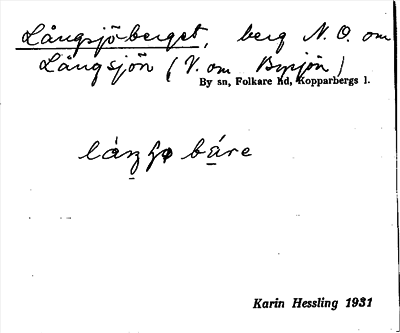 Långsjöberget, berg N.O. om
Långsjön (V. om Bysjön)
By sn, Folkare hd, Kopparbergs l.
Karin Hessling 1931